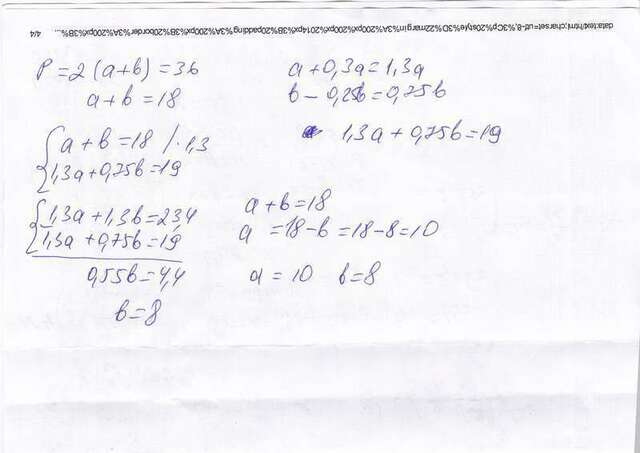 data:text/html;charset=utf-8,%3Cp%20style%3D%22margin%3A%200px%200px%2014px%3B%20padding%3A%200px%3B%20border%3A%200px%3B%... 4/4
P = 2 (a+b) = 36
a + b = 18
{ a + b = 18 / · 1,3
1,3a + 0,75b = 19
{ 1,3a + 1,3b = 23,4
1,3a + 0,75b = 19
0,55b = 4,4
b = 8
a + 0,3a = 1,3a
b - 0,25b = 0,75b
1,3a + 0,75b = 19
a + b = 18
a = 18 - b = 18 - 8 = 10
a = 10 b = 8